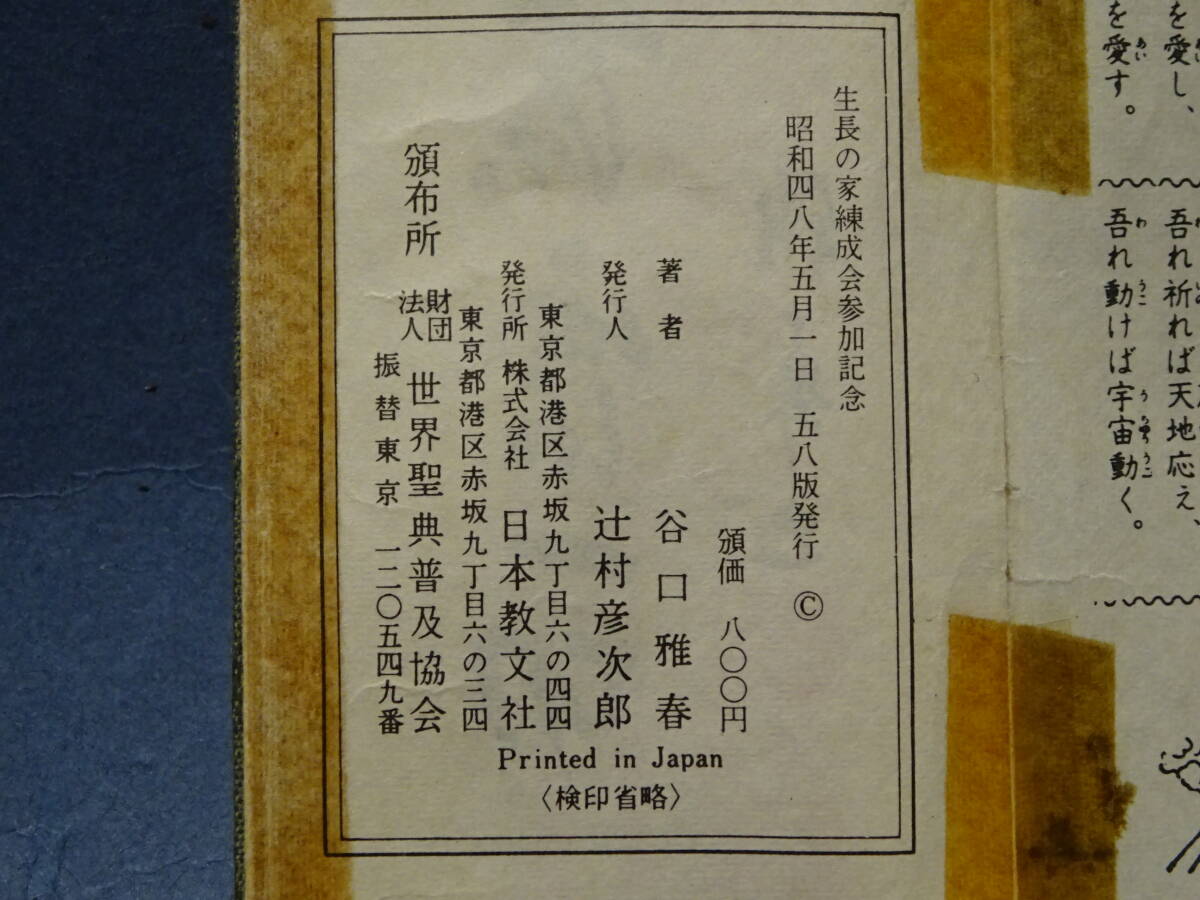 を愛し、
を愛す。
吾れ祈れば天地応え、
吾れ動けば宇宙動く。
生長の家練成会参加記念
昭和四八年五月一日 五八版発行 ©
頒価 八〇〇円
著者 谷口雅春
発行人 辻村彦次郎
東京都港区赤坂九丁目六の四四
発行所 株式会社 日本教文社
東京都港区赤坂九丁目六の三四
頒布所 財団法人 世界聖典普及協会
振替東京 一二〇五四九番
Printed in Japan
〈検印省略〉